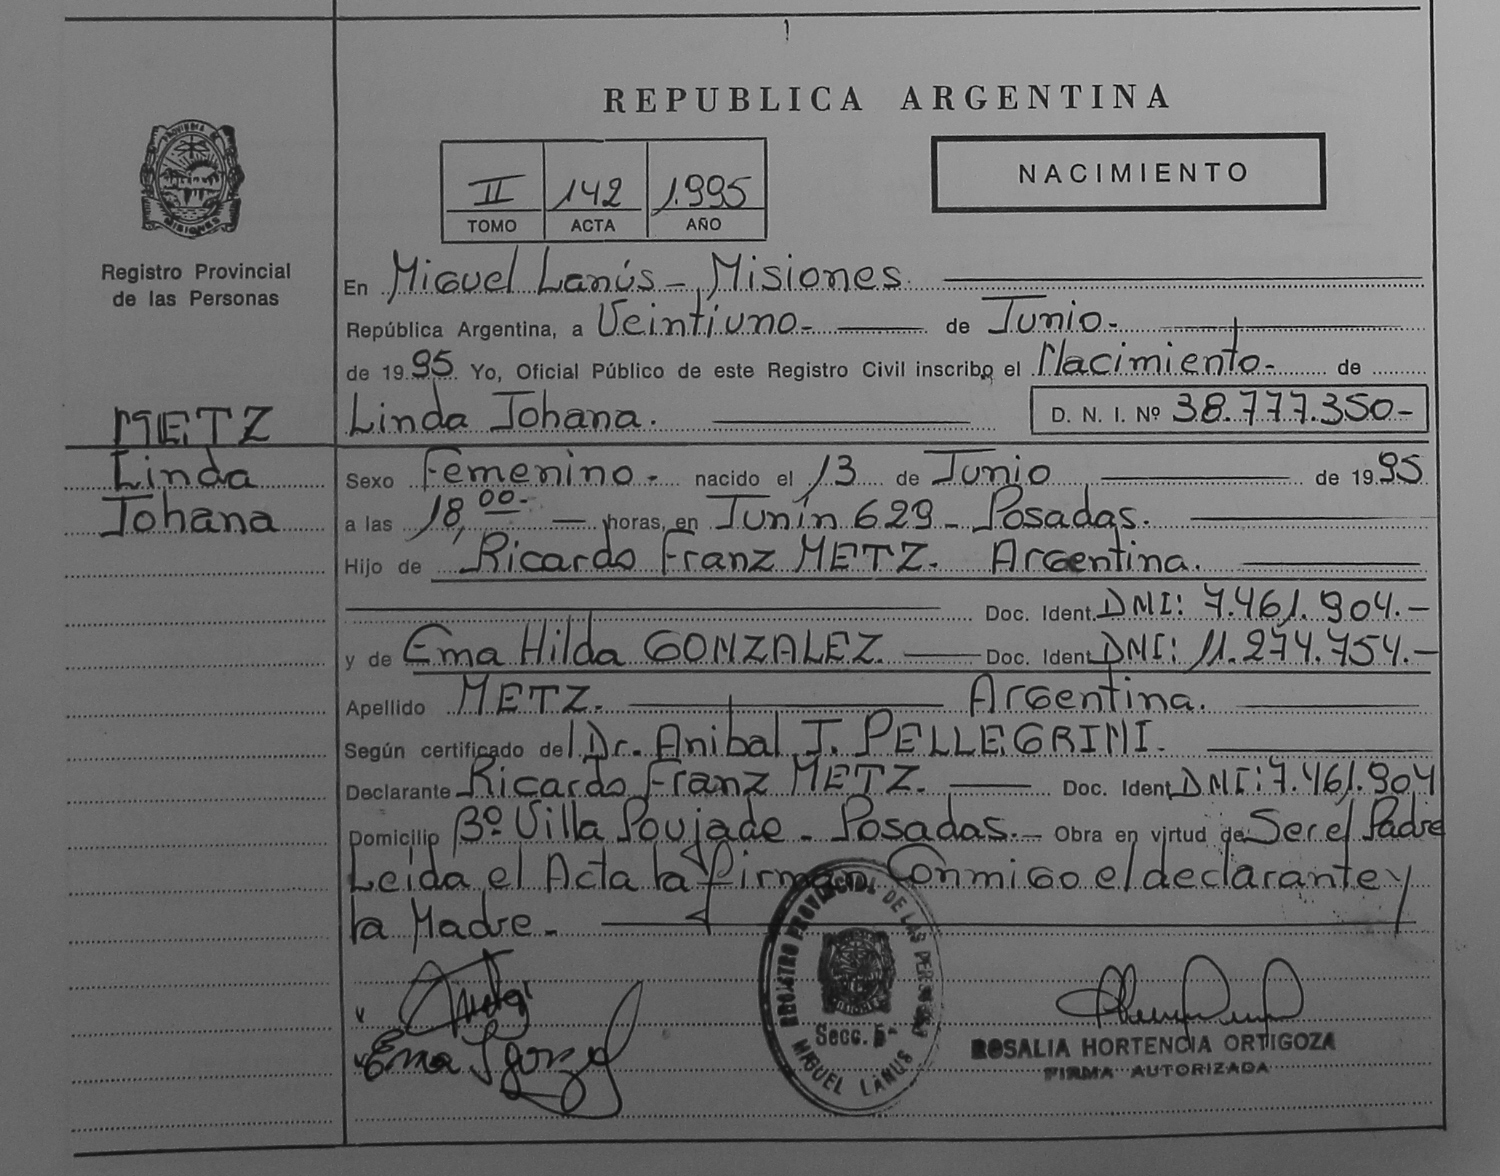 REPUBLICA ARGENTINA
PROVINCIA DE
MISIONES
Registro Provincial
de las Personas
II 142 1.995
TOMO ACTA AÑO
NACIMIENTO
En Miguel Lanús - Misiones.
República Argentina, a Veintiuno - de Junio -
de 19 95 Yo, Oficial Público de este Registro Civil inscribo el Nacimiento - de
Linda Johana. D. N. I. Nº 38.777.350-
METZ
Linda
Johana
Sexo Femenino - nacido el 13 de Junio de 19 95
a las 18,00- horas, en Junín 629 - Posadas.
Hijo de Ricardo Franz METZ. Argentina.
Doc. Ident. DNI: 7.461.904.-
y de Ema Hilda GONZALEZ. Doc. Ident. DNI: 11.274.754.-
Apellido METZ. Argentina.
Según certificado del Dr. Anibal J. PELLEGRINI.
Declarante Ricardo Franz METZ. Doc. Ident. DNI: 7.461.904
Domicilio Bº Villa Poujade - Posadas.- Obra en virtud de Ser el Padre
Leída el Acta la firman Conmigo el declarante y
la Madre -
REGISTRO PROVINCIAL DE LAS PERSONAS
Secc. 5ª
MIGUEL LANUS
ROSALIA HORTENCIA ORTIGOZA
FIRMA AUTORIZADA